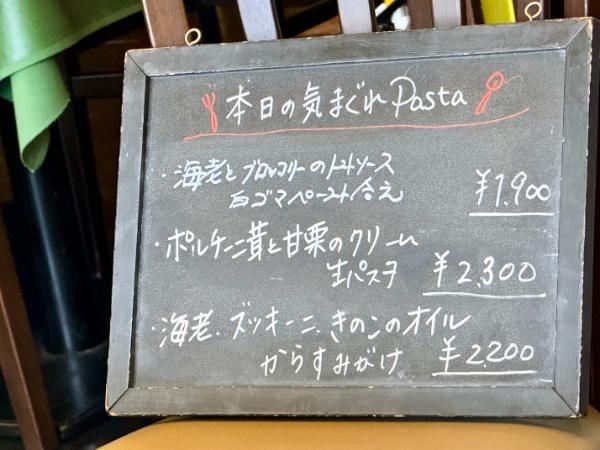 本日の気まぐれPasta
・海老とブロッコリーのトマトソース
白ゴマペースト冷え
¥1,900
・ポルチーニ茸と甘栗のクリーム
生パスタ ¥2,300
・海老、ズッキーニ、きのこのオイル
からすみがけ ¥2,200